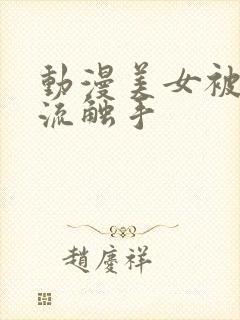 動漫美女被
流触手
趙慶祥